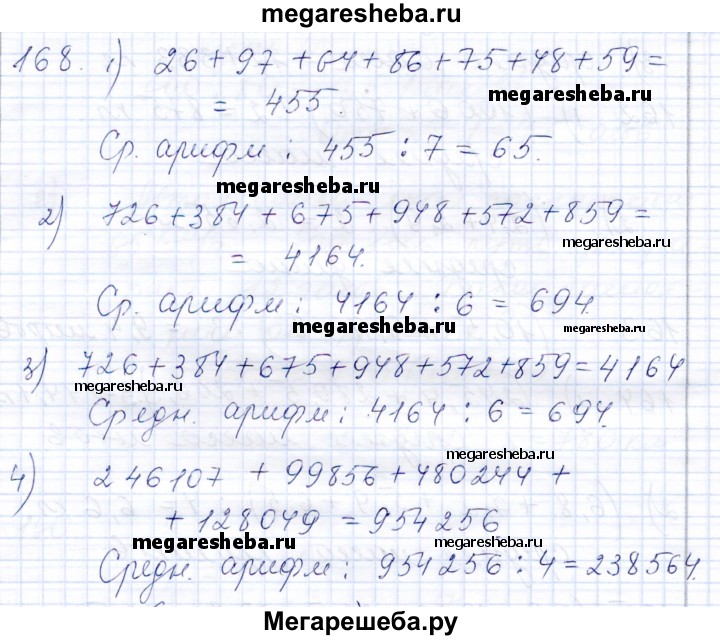 megaresheba.ru
168. 1) 26 + 97 + 64 + 86 + 75 + 48 + 59 =
megaresheba.ru
= 455.
Ср. арифм : 455 : 7 = 65.
megaresheba.ru
2) 726 + 384 + 675 + 948 + 572 + 859 =
megaresheba.ru
= 4164.
Ср. арифм : 4164 : 6 = 694.
megaresheba.ru
megaresheba.ru
3) 726 + 384 + 675 + 948 + 572 + 859 = 4164
megaresheba.ru
Средн. арифм : 4164 : 6 = 694.
megaresheba.ru
4) 246107 + 99856 + 480244 +
+ 128049 = 954256
megaresheba.ru
megaresheba.ru
Средн. арифм : 954256 : 4 = 238564.
Мегарешеба.ру